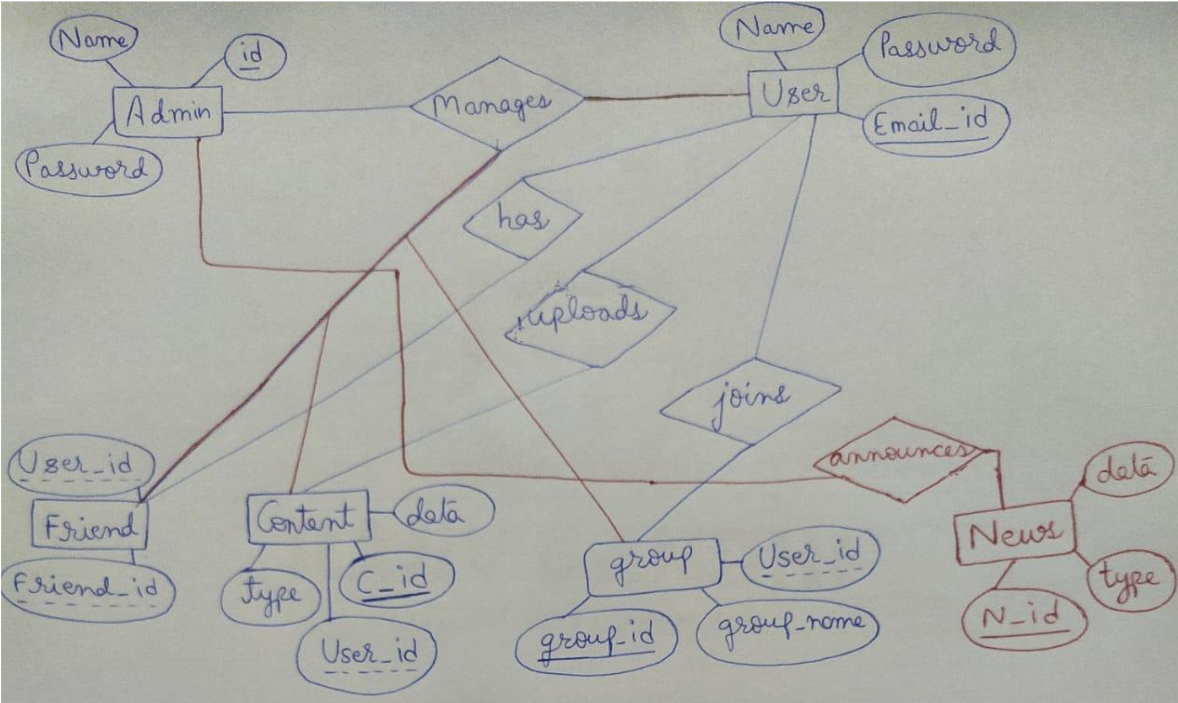 Name
id
Admin
Password
Manages
Name
Password
User
Email_id
has
uploads
joins
announces
User_id
Friend
Friend_id
Content
data
type
C_id
User_id
group
User_id
group_id
group_name
data
News
type
N_id